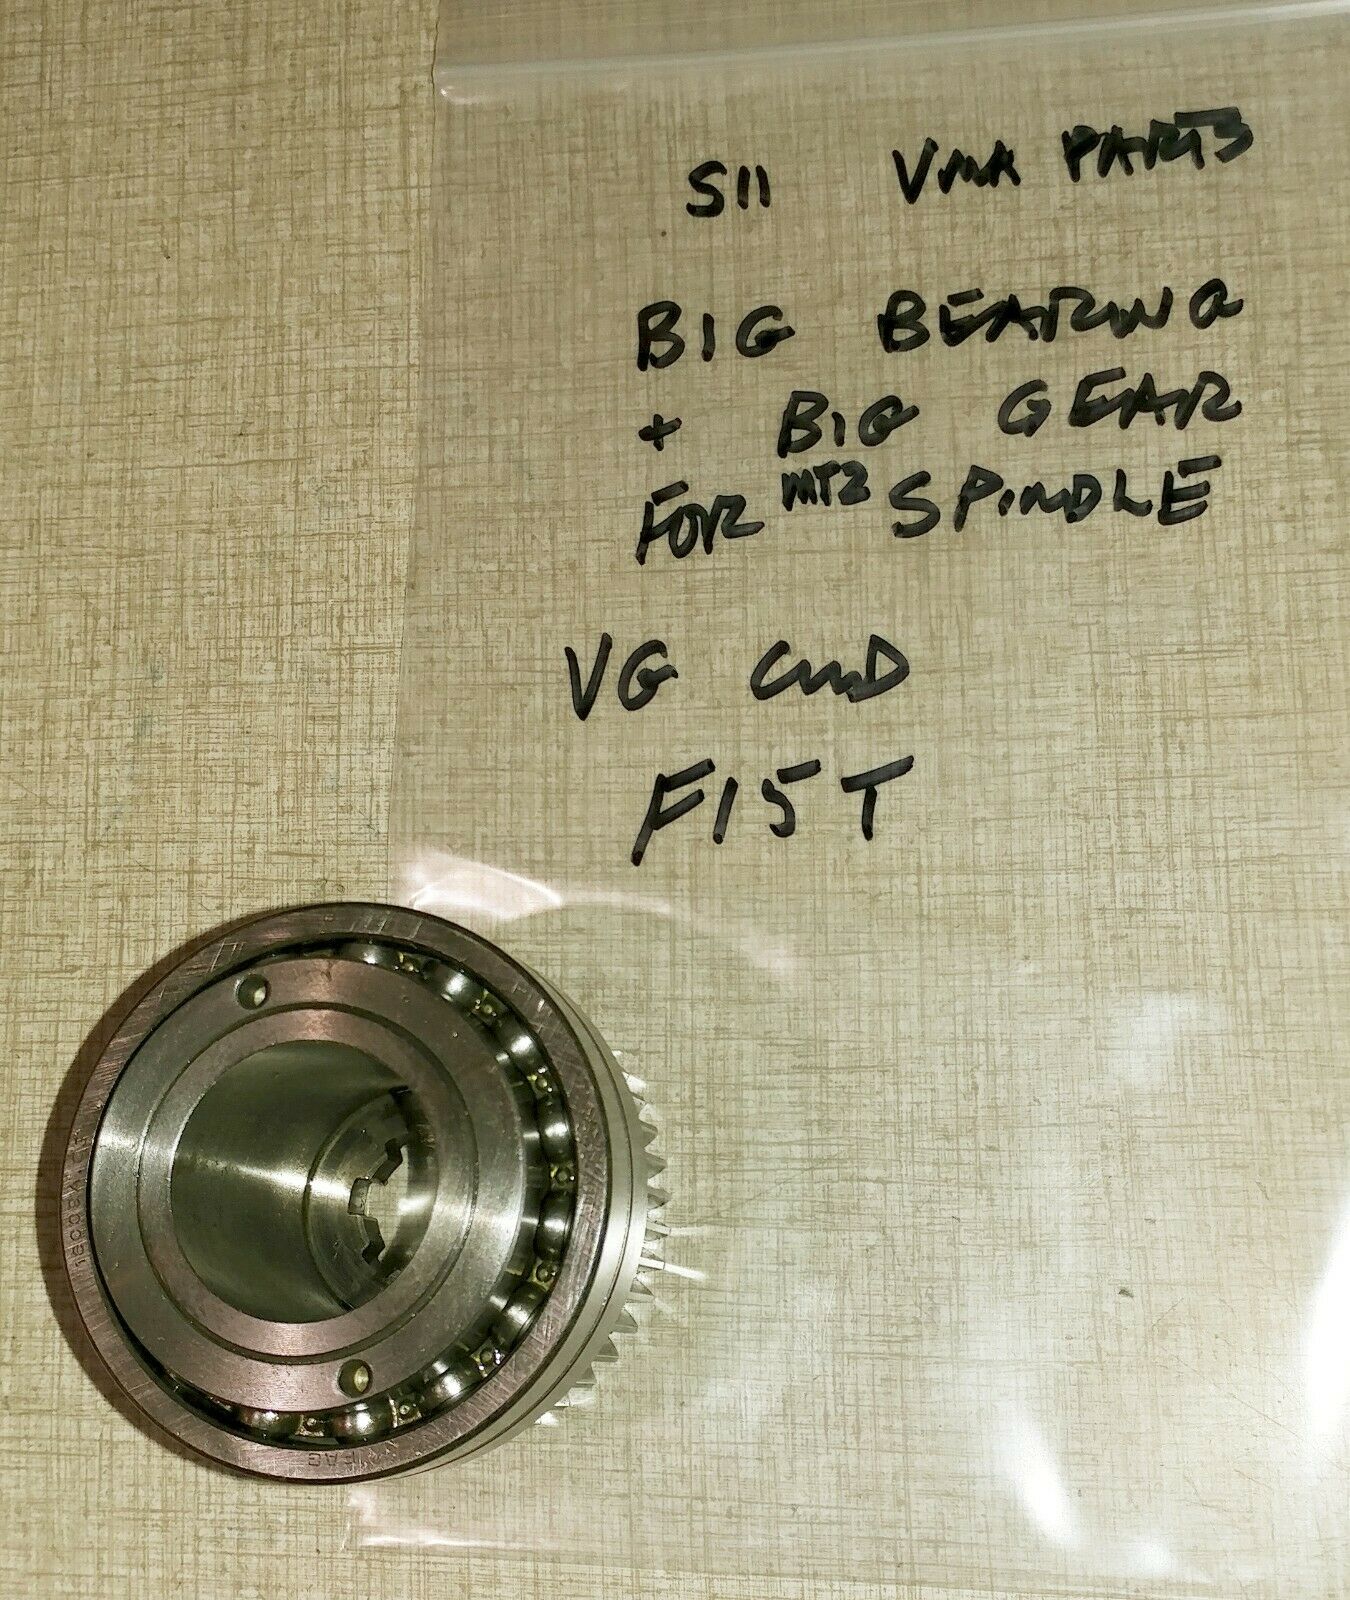 S11 VMA PARTS
BIG BEARING
+ BIG GEAR
FOR MT2 SPINDLE
VG CMD
F15T
FAG